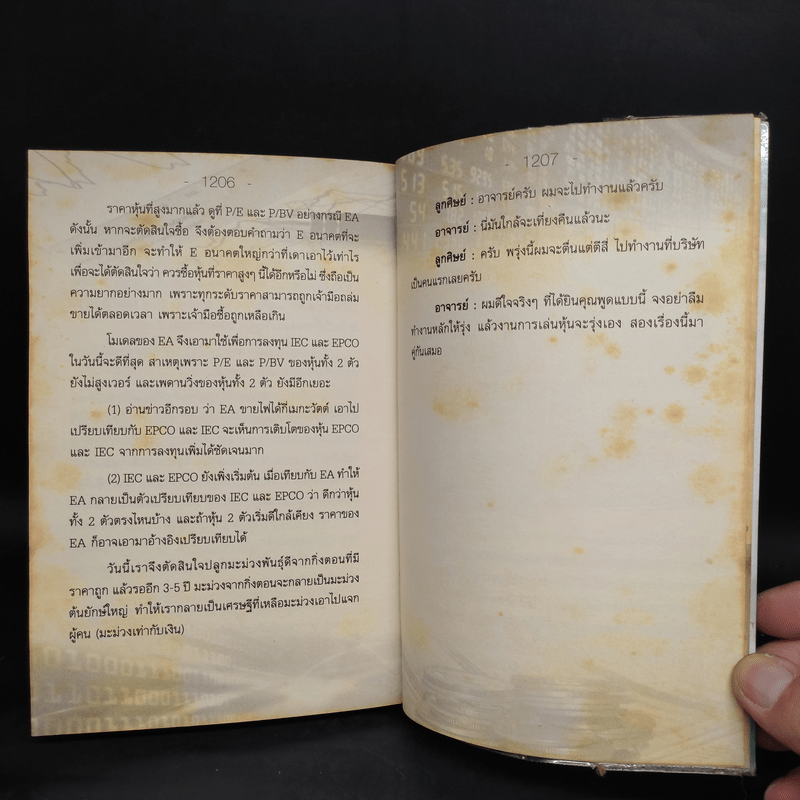 - 1206 -
ราคาหุ้นที่สูงมากแล้ว ดูที่ P/E และ P/BV อย่างกรณี EA
ดังนั้น หากจะตัดสินใจซื้อ จึงต้องตอบคำถามว่า E อนาคตที่จะ
เพิ่มเข้ามาอีก จะทำให้ E อนาคตใหญ่กว่าที่เดาเอาไว้เท่าไร
เพื่อจะได้ตัดสินใจว่า ควรซื้อหุ้นที่ราคาสูงๆ นี้ได้อีกหรือไม่ ซึ่งถือเป็น
ความยากอย่างมาก เพราะทุกระดับราคาสามารถถูกเจ้ามือถล่ม
ขายได้ตลอดเวลา เพราะเจ้ามือซื้อถูกเหลือเกิน
โมเดลของ EA จึงเอามาใช้เพื่อการลงทุน IEC และ EPCO
ในวันนี้จะดีที่สุด สาเหตุเพราะ P/E และ P/BV ของหุ้นทั้ง 2 ตัว
ยังไม่สูงเวอร์ และเพดานวิ่งของหุ้นทั้ง 2 ตัว ยังมีอีกเยอะ
(1) อ่านข่าวอีกรอบ ว่า EA ขายไฟได้กี่เมกะวัตต์ เอาไป
เปรียบเทียบกับ EPCO และ IEC จะเห็นการเติบโตของหุ้น EPCO
และ IEC จากการลงทุนเพิ่มได้ชัดเจนมาก
(2) IEC และ EPCO ยังเพิ่งเริ่มต้น เมื่อเทียบกับ EA ทำให้
EA กลายเป็นตัวเปรียบเทียบของ IEC และ EPCO ว่า ดีกว่าหุ้น
ทั้ง 2 ตัวตรงไหนบ้าง และถ้าหุ้น 2 ตัวเริ่มดีใกล้เคียง ราคาของ
EA ก็อาจเอามาอ้างอิงเปรียบเทียบได้
วันนี้เราจึงตัดสินใจปลูกมะม่วงพันธุ์ดีจากกิ่งตอนที่มี
ราคาถูก แล้วรออีก 3-5 ปี มะม่วงจากกิ่งตอนจะกลายเป็นมะม่วง
ต้นยักษ์ใหญ่ ทำให้เรากลายเป็นเศรษฐีที่เหลือมะม่วงเอาไปแจก
ผู้คน (มะม่วงเท่ากับเงิน)
- 1207 -
ลูกศิษย์ : อาจารย์ครับ ผมจะไปทำงานแล้วครับ
อาจารย์ : นี่มันใกล้จะเที่ยงคืนแล้วนะ
ลูกศิษย์ : ครับ พรุ่งนี้ผมจะตื่นแต่ตีสี่ ไปทำงานที่บริษัท
เป็นคนแรกเลยครับ
อาจารย์ : ผมดีใจจริงๆ ที่ได้ยินคุณพูดแบบนี้ จงอย่าลืม
ทำงานหลักให้รุ่ง แล้วงานการเล่นหุ้นจะรุ่งเอง สองเรื่องนี้มา
คู่กันเสมอ